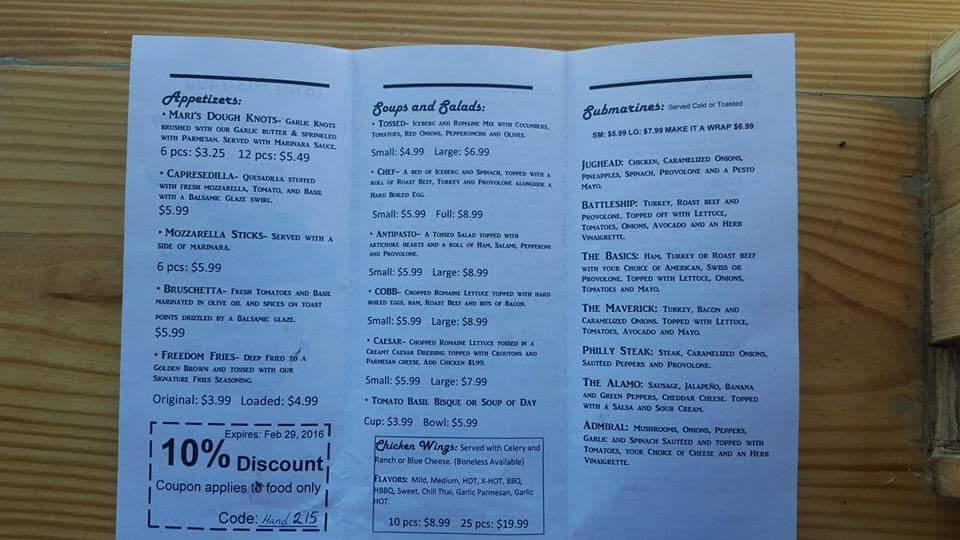 Appetizers:
• Mari's Dough Knots– Garlic Knots
brushed with our Garlic butter & sprinkled
with Parmesan. Served with Marinara Sauce.
6 pcs: $3.25 12 pcs: $5.49
• Capresedilla– Quesadilla stuffed
with fresh mozzarella, Tomato, and Basil
with a Balsamic Glaze swirl.
$5.99
• Mozzarella Sticks– Served with a
side of marinara.
6 pcs: $5.99
• Bruschetta– Fresh Tomatoes and Basil
marinated in olive oil and spices on toast
points drizzled by a Balsamic glaze.
$5.99
• Freedom Fries– Deep Fried to a
Golden Brown and tossed with our
Signature Fries Seasoning.
Original: $3.99 Loaded: $4.99
Expires: Feb 29, 2016
10% Discount
Coupon applies to food only
Code: Hand 215
Soups and Salads:
• Tossed– Iceberg and Romaine Mix with Cucumbers,
Tomatoes, Red Onions, Pepperoncini and Olives.
Small: $4.99 Large: $6.99
• Chef– A bed of Iceberg and Spinach, topped with a
roll of Roast Beef, Turkey and Provolone alongside a
Hard Boiled Egg.
Small: $5.99 Full: $8.99
• Antipasto– A Tossed Salad topped with
artichoke hearts and a roll of Ham, Salami, Pepperoni
and Provolone.
Small: $5.99 Large: $8.99
• COBB– Chopped Romaine Lettuce topped with hard
boiled eggs, ham, Roast Beef and bits of Bacon.
Small: $5.99 Large: $8.99
• Caesar– Chopped Romaine Lettuce tossed in a
Creamy Caesar Dressing topped with Croutons and
Parmesan cheese. Add Chicken $1.99.
Small: $5.99 Large: $7.99
• Tomato Basil Bisque or Soup of Day
Cup: $3.99 Bowl: $5.99
Chicken Wings: Served with Celery and
Ranch or Blue Cheese. (Boneless Available)
Flavors: Mild, Medium, HOT, X-HOT, BBQ,
HBBQ, Sweet, Chili Thai, Garlic Parmesan, Garlic
HOT.
10 pcs: $8.99 25 pcs: $19.99
Submarines: Served Cold or Toasted
SM: $5.99 LG: $7.99 MAKE IT A WRAP $6.99
Jughead: Chicken, Caramelized Onions,
Pineapples, Spinach, Provolone and a Pesto
Mayo.
Battleship: Turkey, Roast beef and
Provolone. Topped off with Lettuce,
Tomatoes, Onions, Avocado and an Herb
Vinaigrette.
The Basics: Ham, Turkey or Roast beef
with your Choice of American, Swiss or
Provolone. Topped with Lettuce, Onions,
Tomatoes and Mayo.
The Maverick: Turkey, Bacon and
Caramelized Onions. Topped with Lettuce,
Tomatoes, Avocado and Mayo.
Philly Steak: Steak, Caramelized Onions,
Sautéed Peppers and Provolone.
The Alamo: Sausage, Jalapeño, Banana
and Green Peppers, Cheddar Cheese. Topped
with a Salsa and Sour Cream.
Admiral: Mushrooms, Onions, Peppers,
Garlic and Spinach Sautéed and topped with
Tomatoes, your Choice of Cheese and an Herb
Vinaigrette.